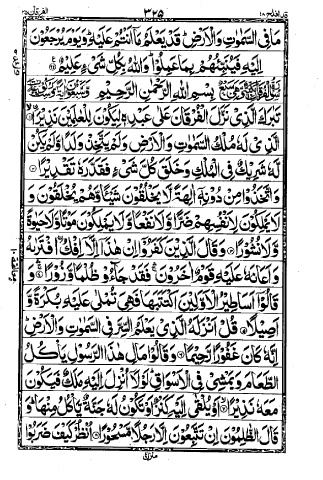 قد افلح ١٨
٣٢٥
الفرقان ٢٥
مَا فِى السَّمٰوٰتِ وَالْاَرْضِ قَدْ يَعْلَمُ مَآ اَنْتُمْ عَلَيْهِ وَيَوْمَ يُرْجَعُوْنَ
اِلَيْهِ فَيُنَبِّئُهُمْ بِمَا عَمِلُوْا وَاللّٰهُ بِكُلِّ شَىْءٍ عَلِيْمٌ
بِسْمِ اللّٰهِ الرَّحْمٰنِ الرَّحِيْمِ
تَبٰرَكَ الَّذِىْ نَزَّلَ الْفُرْقَانَ عَلٰى عَبْدِهٖ لِيَكُوْنَ لِلْعٰلَمِيْنَ نَذِيْرًا
الَّذِىْ لَهٗ مُلْكُ السَّمٰوٰتِ وَالْاَرْضِ وَلَمْ يَتَّخِذْ وَلَدًا وَّلَمْ يَكُنْ
لَّهٗ شَرِيْكٌ فِى الْمُلْكِ وَخَلَقَ كُلَّ شَىْءٍ فَقَدَّرَهٗ تَقْدِيْرًا
وَاتَّخَذُوْا مِنْ دُوْنِهٖٓ اٰلِهَةً لَّا يَخْلُقُوْنَ شَيْئًا وَّهُمْ يُخْلَقُوْنَ وَ
لَا يَمْلِكُوْنَ لِاَنْفُسِهِمْ ضَرًّا وَّلَا نَفْعًا وَّلَا يَمْلِكُوْنَ مَوْتًا وَّلَا حَيٰوةً
وَّلَا نُشُوْرًا وَقَالَ الَّذِيْنَ كَفَرُوْٓا اِنْ هٰذَآ اِلَّآ اِفْكُ افْتَرٰىهُ
وَاَعَانَهٗ عَلَيْهِ قَوْمٌ اٰخَرُوْنَ فَقَدْ جَآءُوْ ظُلْمًا وَّزُوْرًا وَ
قَالُوْٓا اَسَاطِيْرُ الْاَوَّلِيْنَ اكْتَتَبَهَا فَهِىَ تُمْلٰى عَلَيْهِ بُكْرَةً وَّ
اَصِيْلًا قُلْ اَنْزَلَهُ الَّذِىْ يَعْلَمُ السِّرَّ فِى السَّمٰوٰتِ وَالْاَرْضِ
اِنَّهٗ كَانَ غَفُوْرًا رَّحِيْمًا وَقَالُوْا مَالِ هٰذَا الرَّسُوْلِ يَاْكُلُ
الطَّعَامَ وَيَمْشِىْ فِى الْاَسْوَاقِ لَوْلَآ اُنْزِلَ اِلَيْهِ مَلَكٌ فَيَكُوْنَ
مَعَهٗ نَذِيْرًا اَوْ يُلْقٰٓى اِلَيْهِ كَنْزٌ اَوْ تَكُوْنُ لَهٗ جَنَّةٌ يَّاْكُلُ مِنْهَا وَ
قَالَ الظّٰلِمُوْنَ اِنْ تَتَّبِعُوْنَ اِلَّا رَجُلًا مَّسْحُوْرًا اُنْظُرْ كَيْفَ ضَرَبُوْا